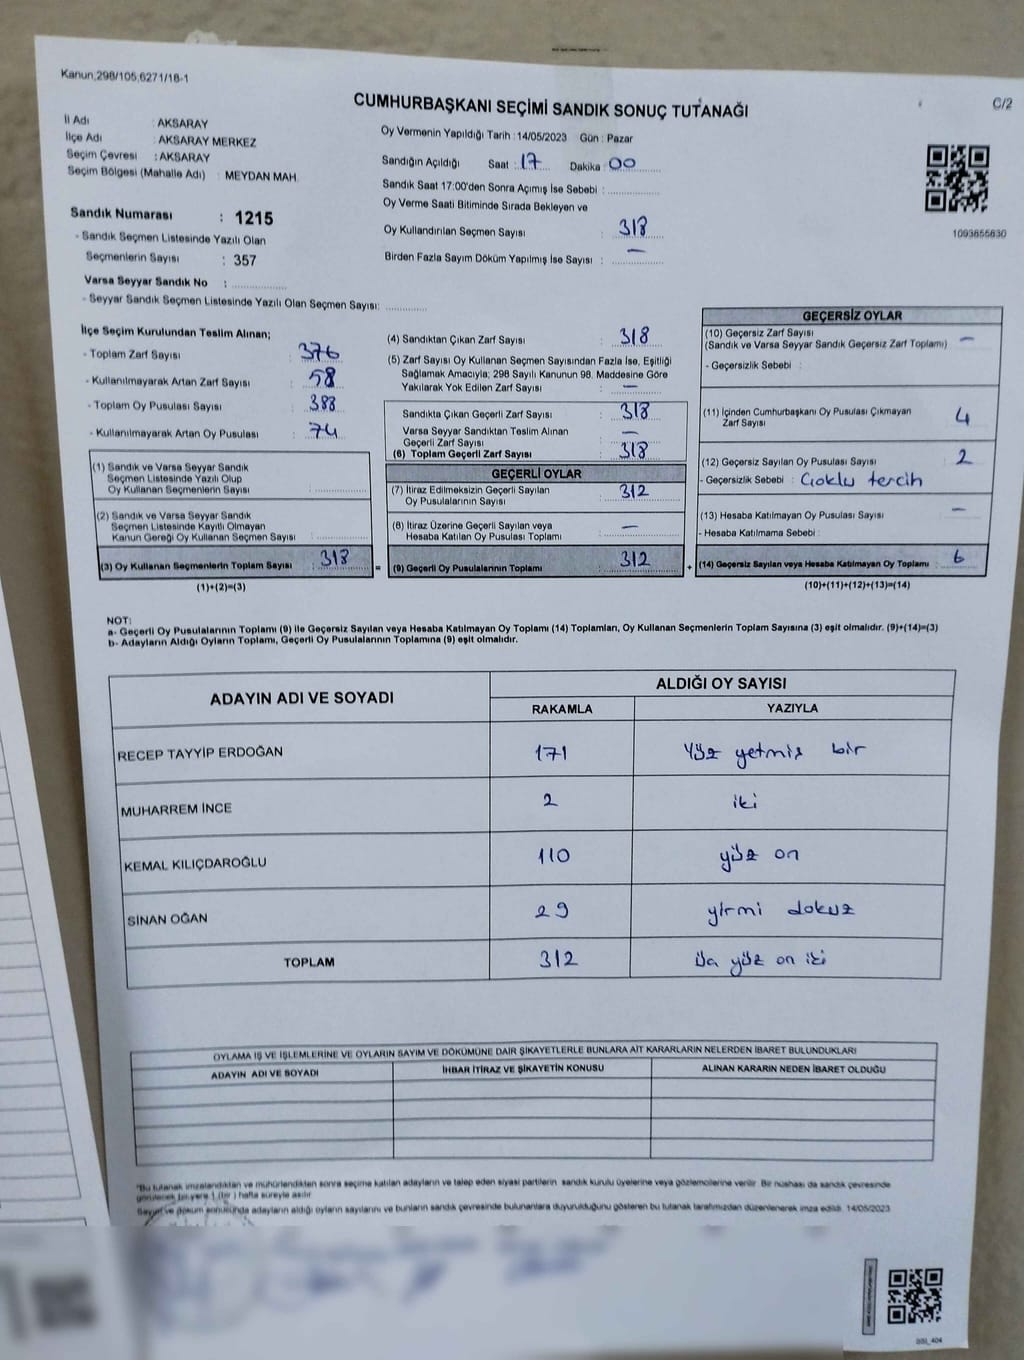 Kanun;298/105,6271/18-1
C/2
CUMHURBAŞKANI SEÇİMİ SANDIK SONUÇ TUTANAĞI
İl Adı : AKSARAY
İlçe Adı : AKSARAY MERKEZ
Seçim Çevresi : AKSARAY
Seçim Bölgesi (Mahalle Adı) : MEYDAN MAH.
Oy Vermenin Yapıldığı Tarih : 14/05/2023 Gün : Pazar
Sandığın Açıldığı Saat : 17 Dakika : 00
Sandık Saat 17:00'den Sonra Açımış İse Sebebi :
Oy Verme Saati Bitiminde Sırada Bekleyen ve
Oy Kullandırılan Seçmen Sayısı : 318
Birden Fazla Sayım Döküm Yapılmış İse Sayısı : —
1093655630
Sandık Numarası : 1215
- Sandık Seçmen Listesinde Yazılı Olan
Seçmenlerin Sayısı : 357
Varsa Seyyar Sandık No :
- Seyyar Sandık Seçmen Listesinde Yazılı Olan Seçmen Sayısı:
İlçe Seçim Kurulundan Teslim Alınan;
- Toplam Zarf Sayısı : 376
- Kullanılmayarak Artan Zarf Sayısı : 58
- Toplam Oy Pusulası Sayısı : 388
- Kullanılmayarak Artan Oy Pusulası : 74
(1) Sandık ve Varsa Seyyar Sandık
Seçmen Listesinde Yazılı Olup
Oy Kullanan Seçmenlerin Sayısı :
(2) Sandık ve Varsa Seyyar Sandık
Seçmen Listesinde Kayıtlı Olmayan
Kanun Gereği Oy Kullanan Seçmen Sayısı :
(3) Oy Kullanan Seçmenlerin Toplam Sayısı : 318
(1)+(2)=(3)
(4) Sandıktan Çıkan Zarf Sayısı : 318
(5) Zarf Sayısı Oy Kullanan Seçmen Sayısından Fazla İse, Eşitliği
Sağlamak Amacıyla; 298 Sayılı Kanunun 98. Maddesine Göre
Yakılarak Yok Edilen Zarf Sayısı : —
Sandıkta Çıkan Geçerli Zarf Sayısı : 318
Varsa Seyyar Sandıktan Teslim Alınan
Geçerli Zarf Sayısı : —
(6) Toplam Geçerli Zarf Sayısı : 318
GEÇERLİ OYLAR
(7) İtiraz Edilmeksizin Geçerli Sayılan
Oy Pusulalarının Sayısı : 312
(8) İtiraz Üzerine Geçerli Sayılan veya
Hesaba Katılan Oy Pusulası Toplamı : —
= (9) Geçerli Oy Pusulalarının Toplamı : 312
GEÇERSİZ OYLAR
(10) Geçersiz Zarf Sayısı
(Sandık ve Varsa Seyyar Sandık Geçersiz Zarf Toplamı) —
- Geçersizlik Sebebi :
(11) İçinden Cumhurbaşkanı Oy Pusulası Çıkmayan
Zarf Sayısı : 4
(12) Geçersiz Sayılan Oy Pusulası Sayısı : 2
- Geçersizlik Sebebi : Çoklu tercih
(13) Hesaba Katılmayan Oy Pusulası Sayısı : —
- Hesaba Katılmama Sebebi :
+ (14) Geçersiz Sayılan veya Hesaba Katılmayan Oy Toplamı : 6
(10)+(11)+(12)+(13)=(14)
NOT:
a- Geçerli Oy Pusulalarının Toplamı (9) ile Geçersiz Sayılan veya Hesaba Katılmayan Oy Toplamı (14) Toplamları, Oy Kullanan Seçmenlerin Toplam Sayısına (3) eşit olmalıdır. (9)+(14)=(3)
b- Adayların Aldığı Oyların Toplamı, Geçerli Oy Pusulalarının Toplamına (9) eşit olmalıdır.
ADAYIN ADI VE SOYADI ALDIĞI OY SAYISI
RAKAMLA YAZIYLA
RECEP TAYYİP ERDOĞAN 171 Yüz yetmiş bir
MUHARREM İNCE 2 iki
KEMAL KILIÇDAROĞLU 110 yüz on
SİNAN OĞAN 29 yirmi dokuz
TOPLAM 312 üç yüz on iki
OYLAMA İŞ VE İŞLEMLERİNE VE OYLARIN SAYIM VE DÖKÜMÜNE DAİR ŞİKAYETLERLE BUNLARA AİT KARARLARIN NELERDEN İBARET BULUNDUKLARI
ADAYIN ADI VE SOYADI İHBAR İTİRAZ VE ŞİKAYETİN KONUSU ALINAN KARARIN NEDEN İBARET OLDUĞU
"Bu tutanak imzalandıktan ve mühürlendikten sonra seçime katılan adayların ve talep eden siyasi partilerin sandık kurulu üyelerine veya gözlemcilerine verilir. Bir nüshası da sandık çevresinde
görülecek bir yere 1 (bir ) hafta süreyle asılır
Sayım ve döküm sonucunda adayların aldığı oyların sayılarını ve bunların sandık çevresinde bulunanlara duyurulduğunu gösteren bu tutanak tarafımızdan düzenlenerek imza edildi. 14/05/2023